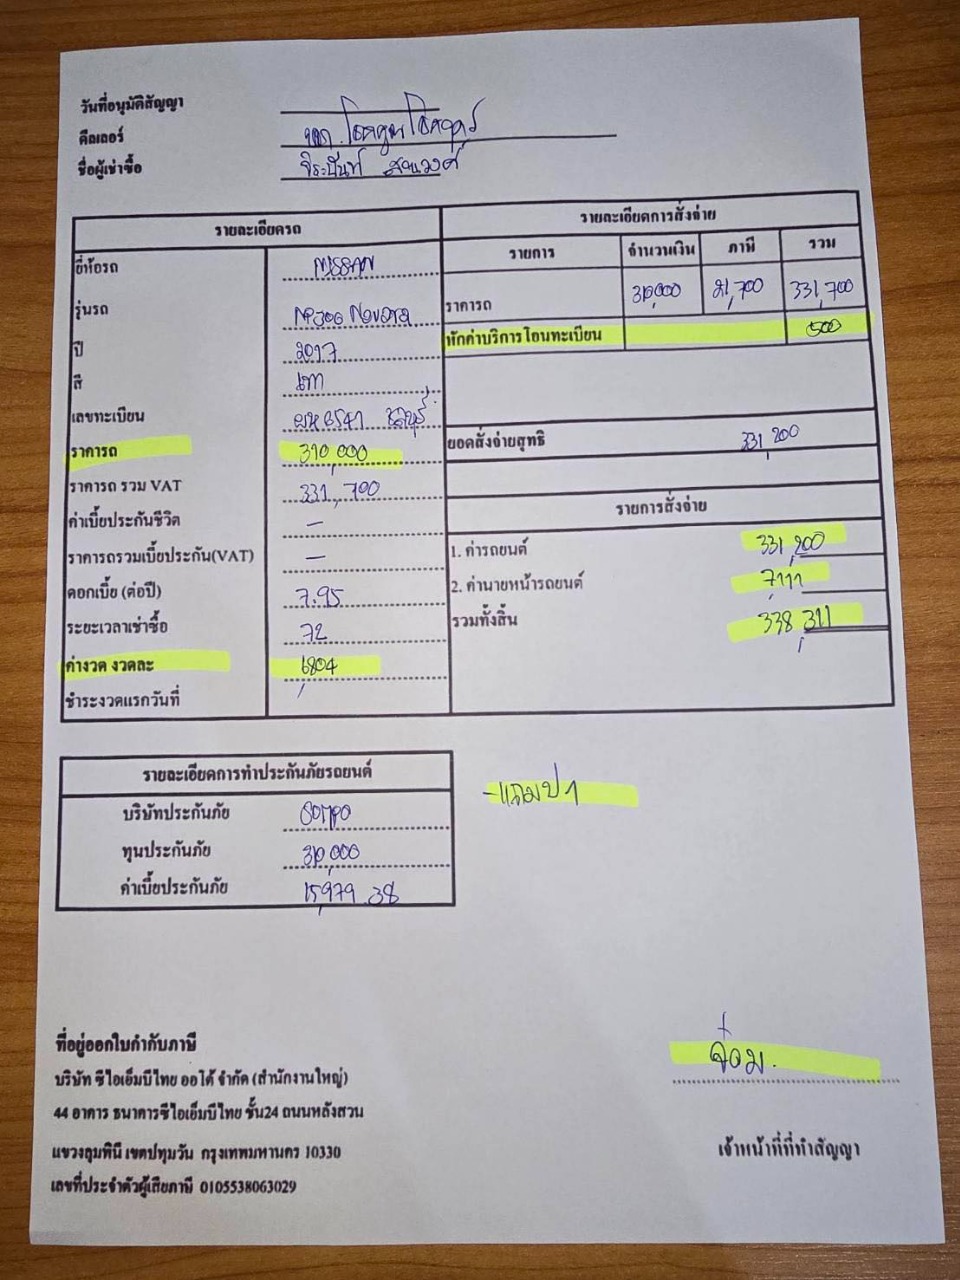 วันที่อนุมัติสัญญา
ดีลเลอร์ หจก. โชคคูณโชคคาร์
ชื่อผู้เช่าซื้อ จิระนันท์
รายละเอียดรถ
ยี่ห้อรถ NISSAN
รุ่นรถ NP300 Navara
ปี 2017
สี เทา
เลขทะเบียน ชลบุรี
ราคารถ 310,000
ราคารถ รวม VAT 331,700
ค่าเบี้ยประกันชีวิต —
ราคารถรวมเบี้ยประกัน(VAT) —
ดอกเบี้ย (ต่อปี) 7.95
ระยะเวลาเช่าซื้อ 72
ค่างวด งวดละ 6,804
ชำระงวดแรกวันที่
รายละเอียดการสั่งจ่าย
รายการ จำนวนเงิน ภาษี รวม
ราคารถ 310,000 21,700 331,700
หักค่าบริการโอนทะเบียน 500
ยอดสั่งจ่ายสุทธิ 331,200
รายการสั่งจ่าย
1. ค่ารถยนต์ 331,200
2. ค่านายหน้ารถยนต์ 7,111
รวมทั้งสิ้น 338,311
รายละเอียดการทำประกันภัยรถยนต์
บริษัทประกันภัย SOMPO
ทุนประกันภัย 310,000
ค่าเบี้ยประกันภัย 15,979.38
-แถมป1
ที่อยู่ออกใบกำกับภาษี
บริษัท ซีไอเอ็มบีไทย ออโต้ จำกัด (สำนักงานใหญ่)
44 อาคาร ธนาคารซีไอเอ็มบีไทย ชั้น24 ถนนหลังสวน
แขวงลุมพินี เขตปทุมวัน กรุงเทพมหานคร 10330
เลขที่ประจำตัวผู้เสียภาษี 0105538063029
จ๋อม.
เจ้าหน้าที่ที่ทำสัญญา